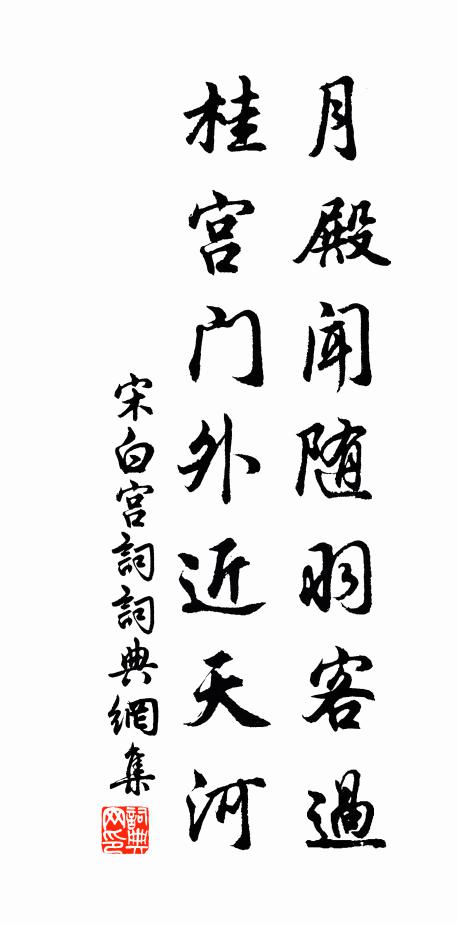 月殿闻随羽客过
桂宫门外近天河
宋白宫詞詞典網集
詞典网印